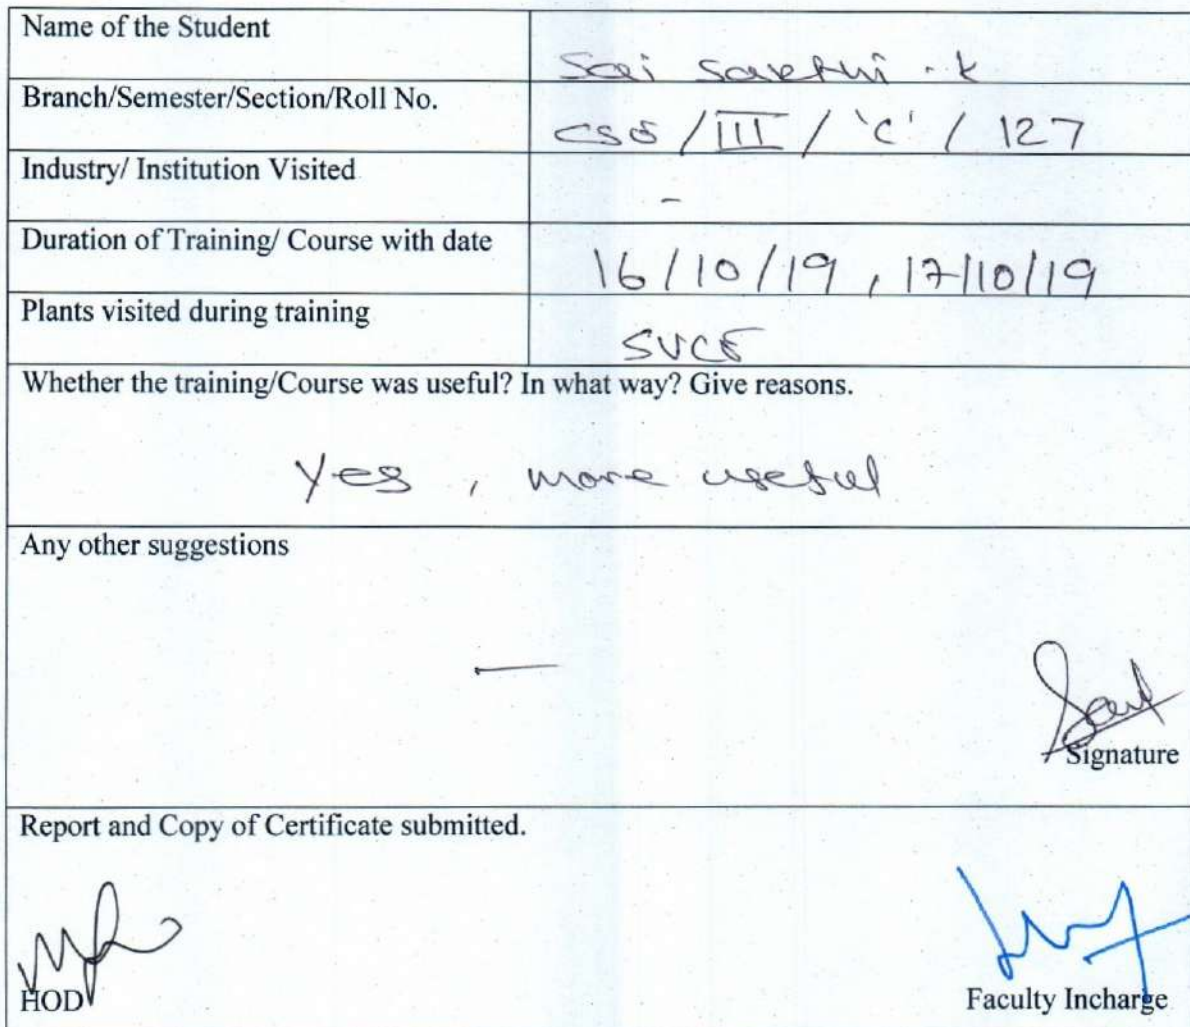 Name of the Student
Sai Sakthi . K
Branch/Semester/Section/Roll No.
CSE / III / 'C' / 127
Industry/ Institution Visited
-
Duration of Training/ Course with date
16/10/19 , 17/10/19
Plants visited during training
SVCE
Whether the training/Course was useful? In what way? Give reasons.
Yes , more useful
Any other suggestions
—
Signature
Report and Copy of Certificate submitted.
HOD
Faculty Incharge